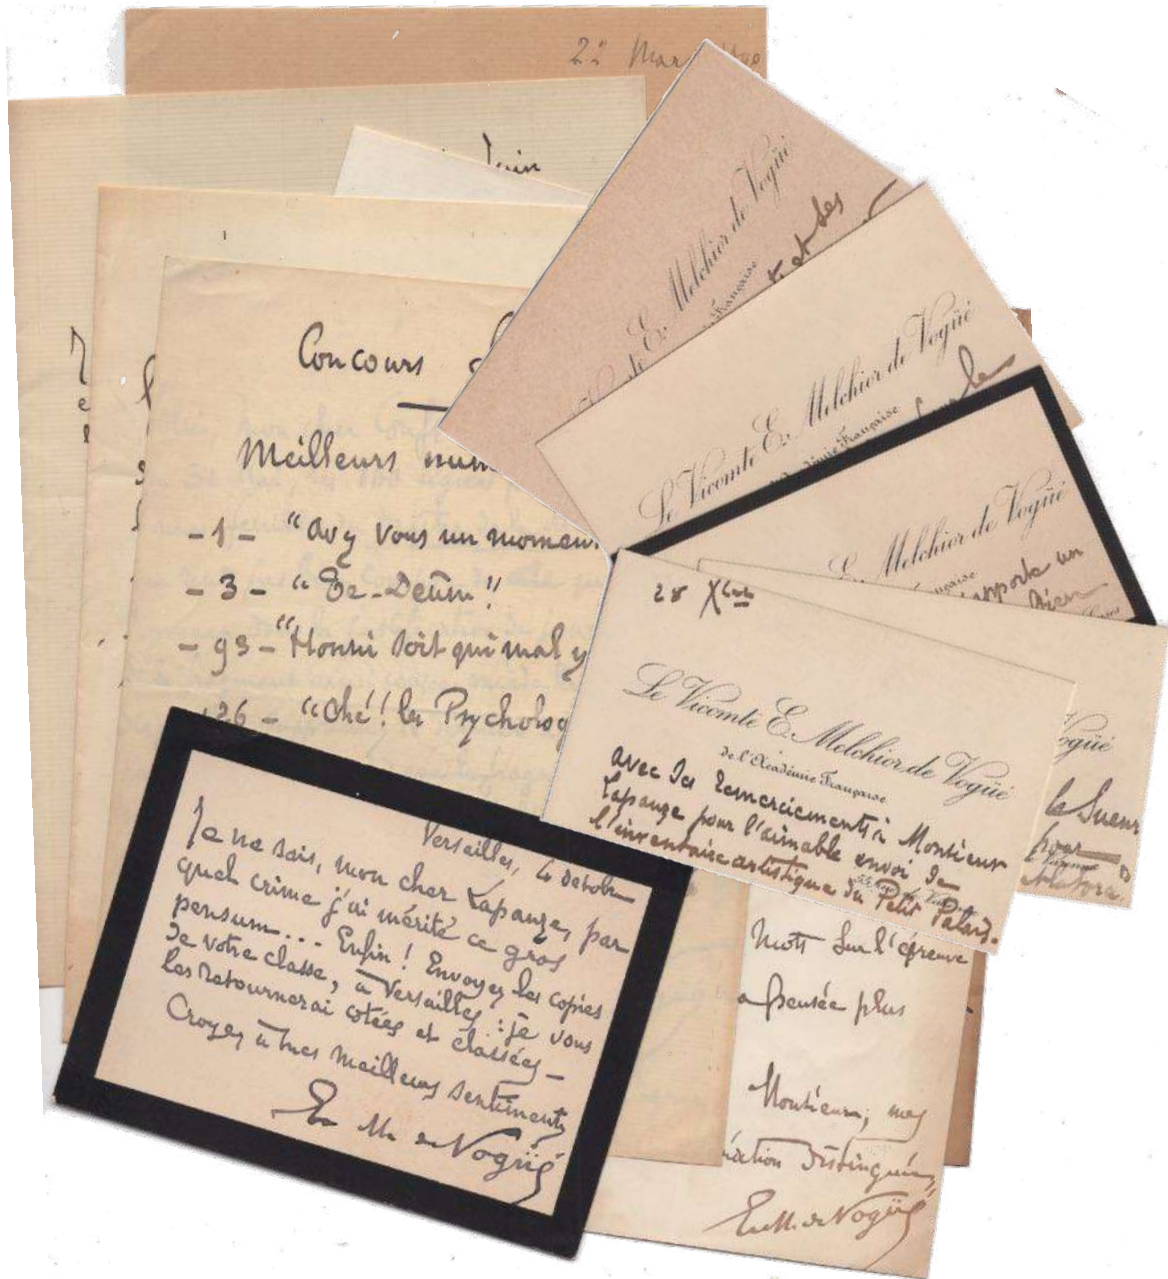 22 Mar
Juin
Concours
Meilleurs num
- 1 - "Avez vous un momen
- 3 - "Te-Deum"
- 93 - "Honni soit qui mal y
126 - "Ohé! les Psycholog
E. Melchior de Vogüé
Française
et ses
Le Vicomte E. Melchior de Vogüé
Française
E. Melchior de Vogüé
rapporte un
28 Xbre
Le Vicomte E. Melchior de Vogüé
de l'Académie Française
avec ses remerciements à Monsieur
Lapauze pour l'aimable envoi de
l'inventaire artistique du Petit Palais.
ogüé
le Sueur
pour
Versailles, 4 octobre
Je ne sais, mon cher Lapauze, par
quel crime j'ai mérité ce gros
pensum... Enfin! Envoyez les copies
de votre classe, à Versailles: je vous
les retournerai cotées et classées —
Croyez à mes meilleurs sentiments
E. M. de Vogüé
mots sur l'épreuve
a pensée plus
Monsieur, mes
ration distinguée,
E. M. de Vogüé